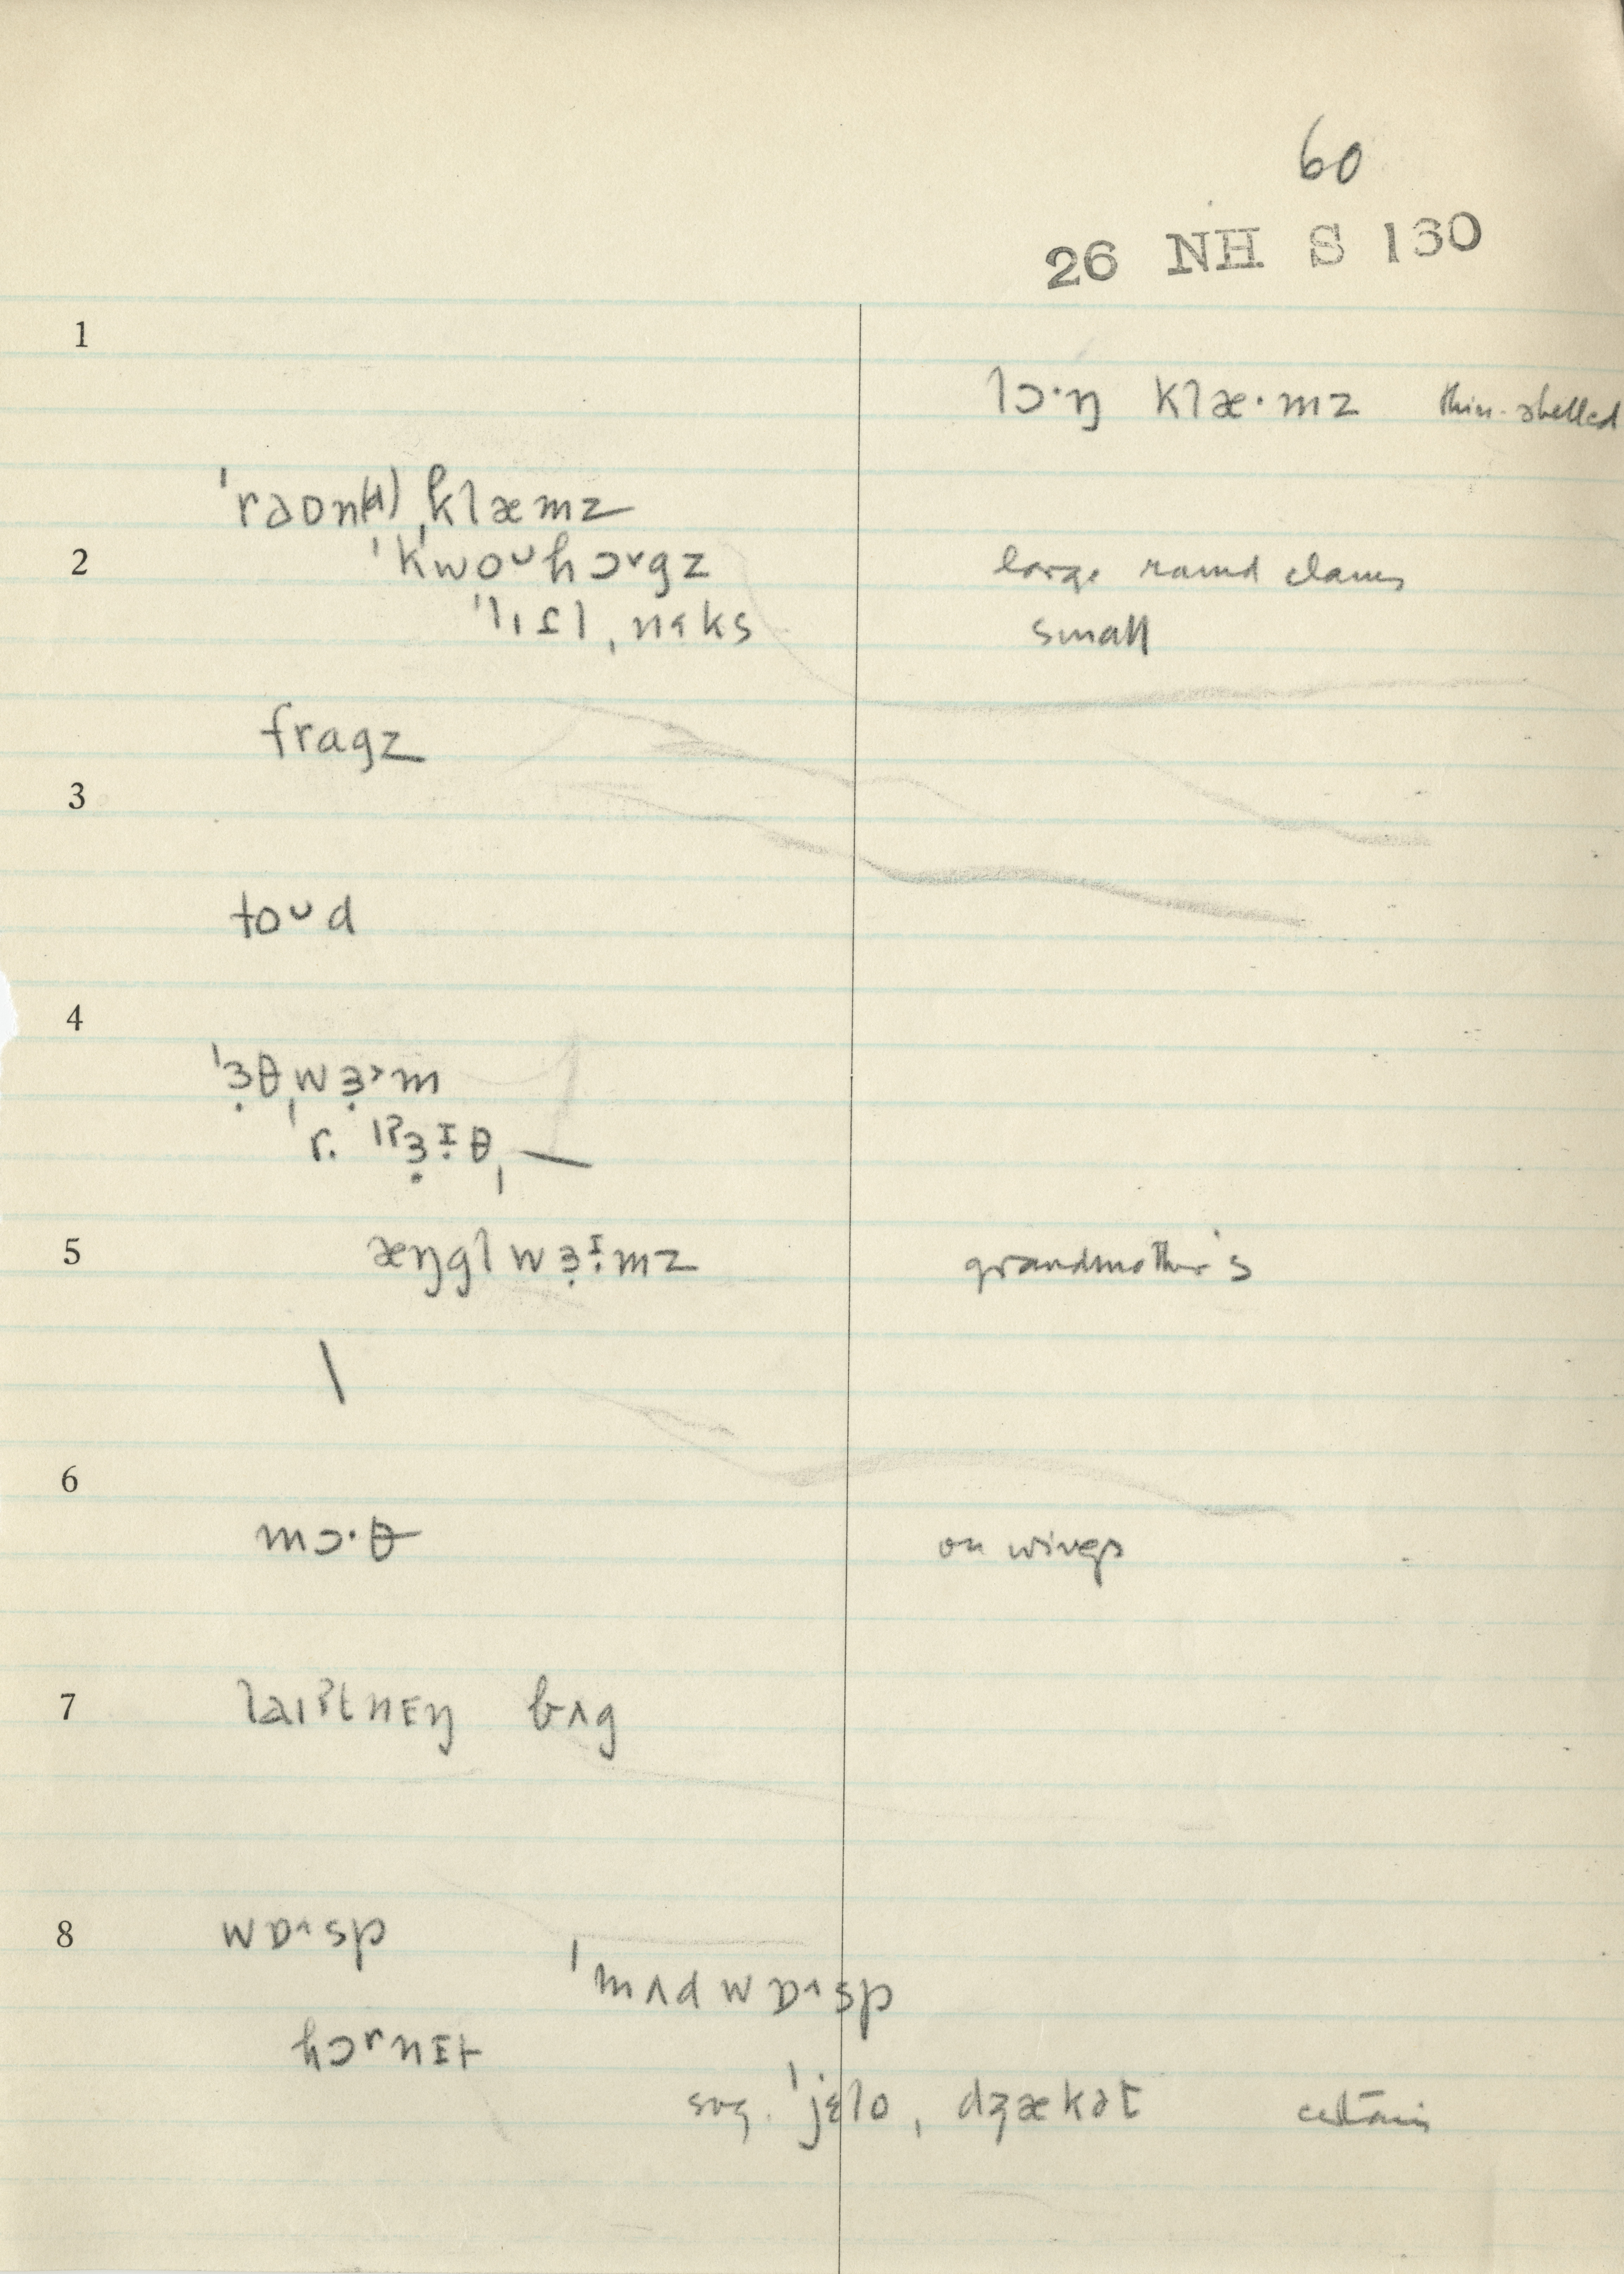 60
26 NH S 130
1
lɔ·ŋ klæ·mz thin-shelled
ˈraʊn(d)ˌklæmz
2 ˈkwoᴜhɔʳgz large round clams
ˈlɪtl̩ˌnɛks small
fragz
3
toᴜd
4
ˈɜ̣θˌwɜ̣ᵊm
r. ɜ̣ᶦθˌ—
5 æŋglwɜ̣ᶦmz grandmother's
\
6
mɔ·θ on wings
7 laɪˀtnɪŋ bʌg
8 wɒᶺsp
ˈmʌdwɒᶺsp
hɔʳnɪt
sug. ˈjɛloˌdʒækət certain